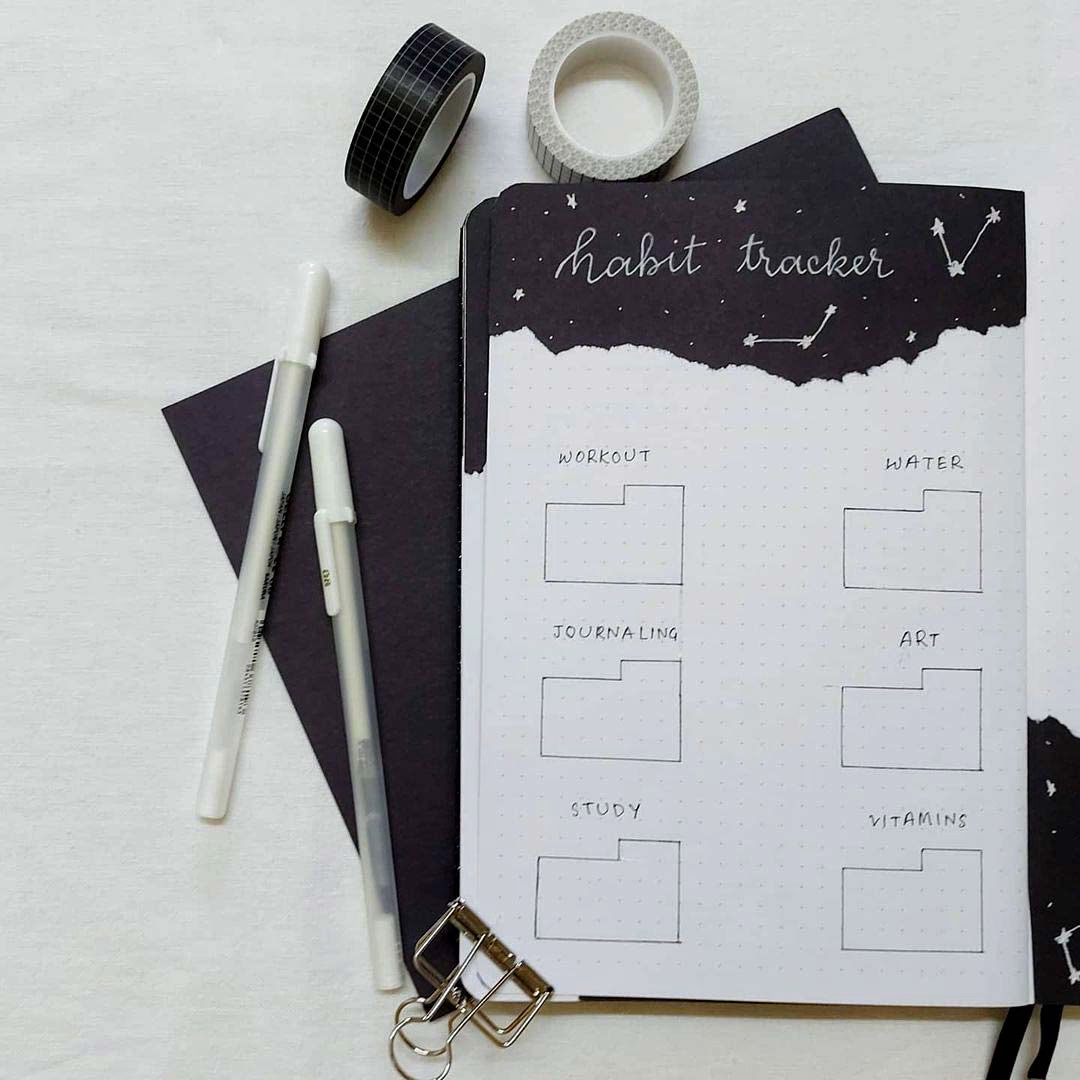 habit tracker
WORKOUT
WATER
JOURNALING
ART
STUDY
VITAMINS
08